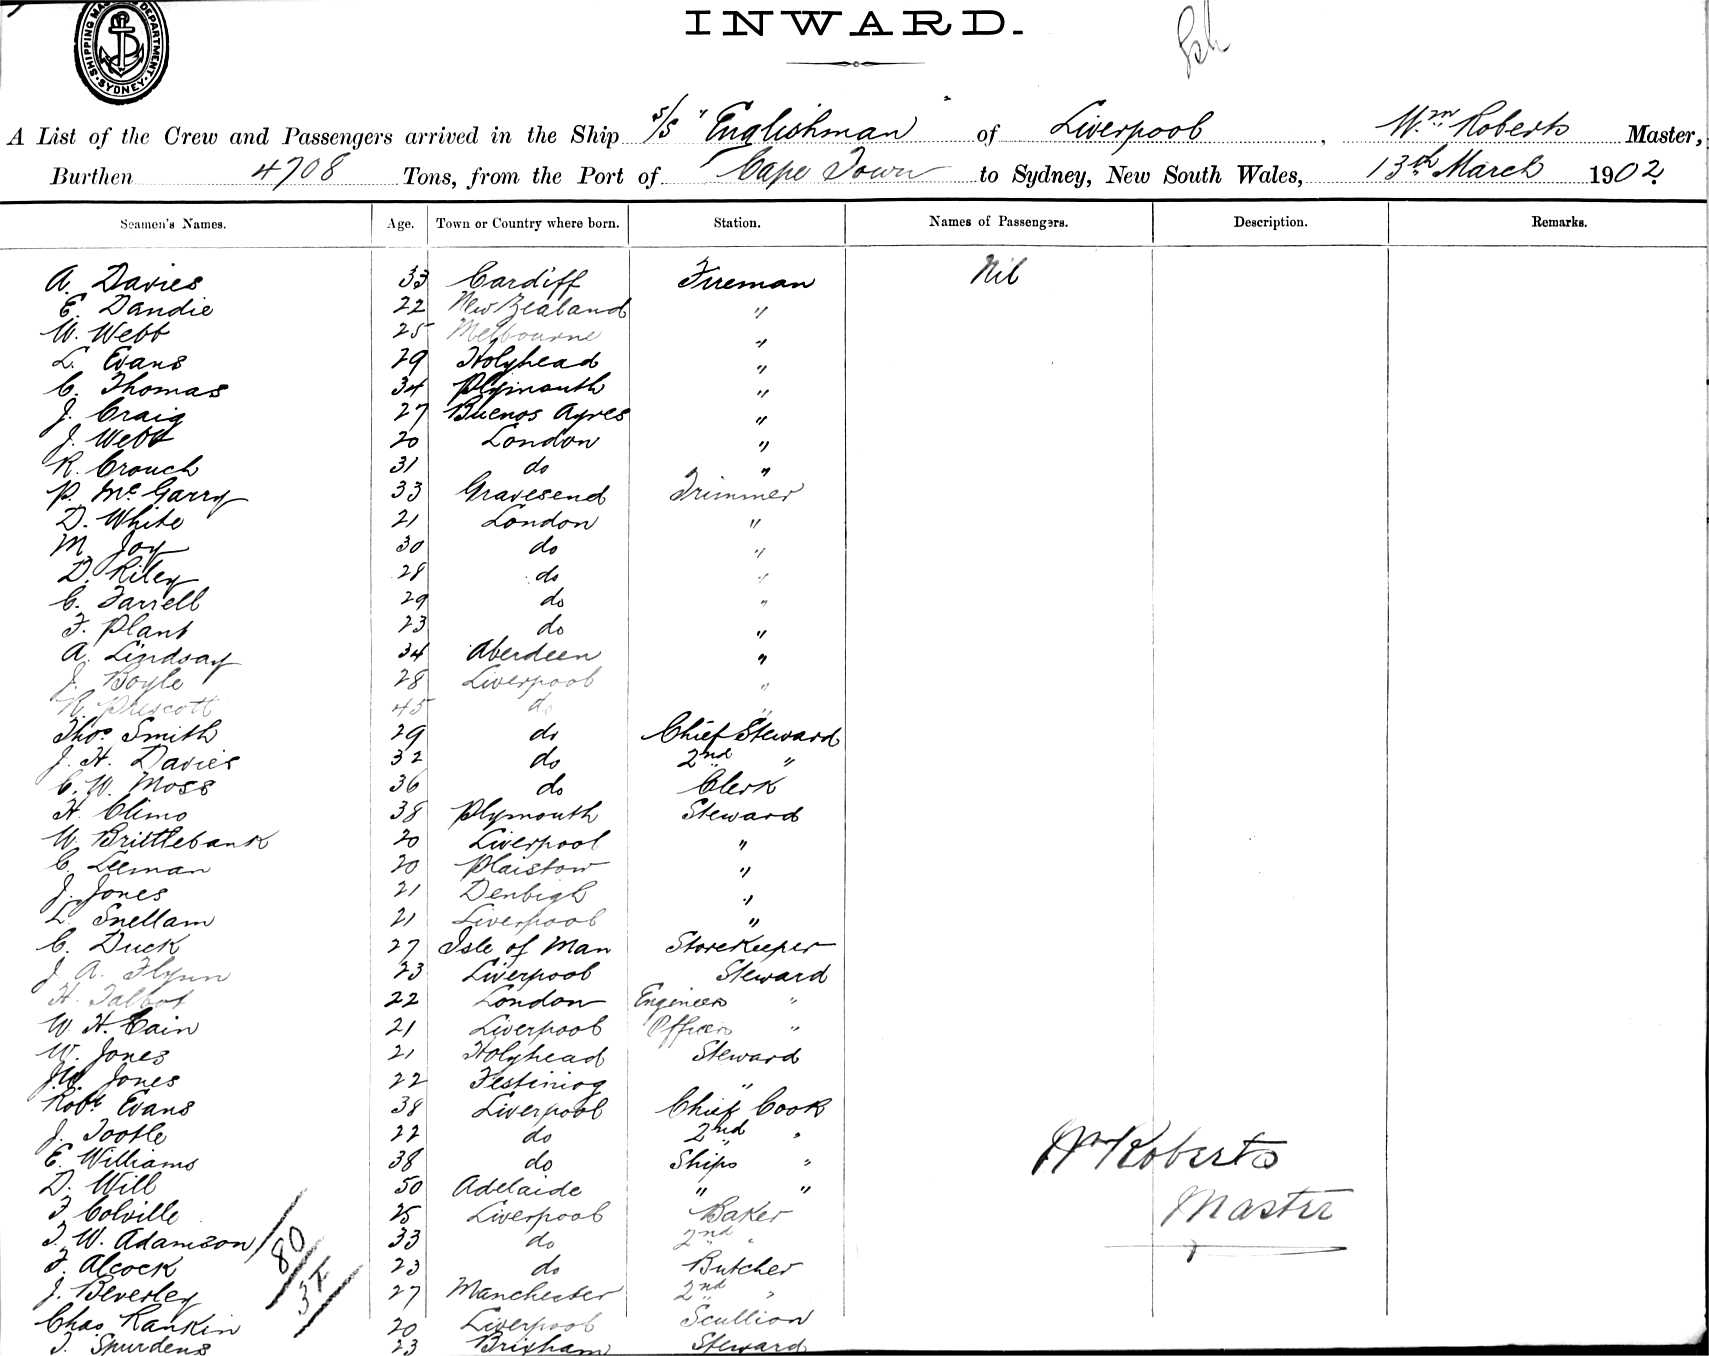 SHIPPING MASTER'S DEPARTMENT SYDNEY
INWARD.
A List of the Crew and Passengers arrived in the Ship s/s "Englishman" of Liverpool, Wm Roberts Master,
Burthen 4708 Tons, from the Port of Cape Town to Sydney, New South Wales, 13th March 1902.
Seamen's Names. Age. Town or Country where born. Station. Names of Passengers. Description. Remarks.
A. Davies 33 Cardiff Fireman Nil
E. Dandie 22 New Zealand "
W. Webb 25 Melbourne "
L. Evans 29 Holyhead "
C. Thomas 34 Plymouth "
J. Craig 27 Buenos Ayres "
J. Webb 20 London "
R. Crouch 31 do "
P. McGarry 33 Gravesend Trimmer
D. White 21 London "
M. Joy 30 do "
D. Riley 28 do "
C. Farrell 29 do "
F. Plant 23 do "
A. Lindsay 34 Aberdeen "
J. Boyle 28 Liverpool "
R. Prescott 45 do "
Thos Smith 29 do Chief Steward
J. H. Davies 32 do 2nd "
C. W. Moss 36 do Clerk
H. Climo 38 Plymouth Steward
W. Brittlebank 20 Liverpool "
C. Leeman 20 Plaistow "
J. Jones 21 Denbigh "
L. Snellam 21 Liverpool "
C. Duck 27 Isle of Man Storekeeper
J. A. Flynn 23 Liverpool Steward
H. Talbot 22 London Engineers "
W. H. Cain 21 Liverpool Officers "
W. Jones 21 Holyhead Steward
J. W. Jones 22 Festiniog "
Robt Evans 38 Liverpool Chief Cook
J. Tootle 22 do 2nd "
E. Williams 38 do Ships "
D. Will 50 Adelaide " "
F. Colville 25 Liverpool Baker
T. W. Adamson 33 do 2nd "
F. Alcock 23 do Butcher
J. Beverley 27 Manchester 2nd "
Chas Rankin 20 Liverpool Scullion
T. Spurdens 23 Brixham Steward
80
Wm Roberts
Master